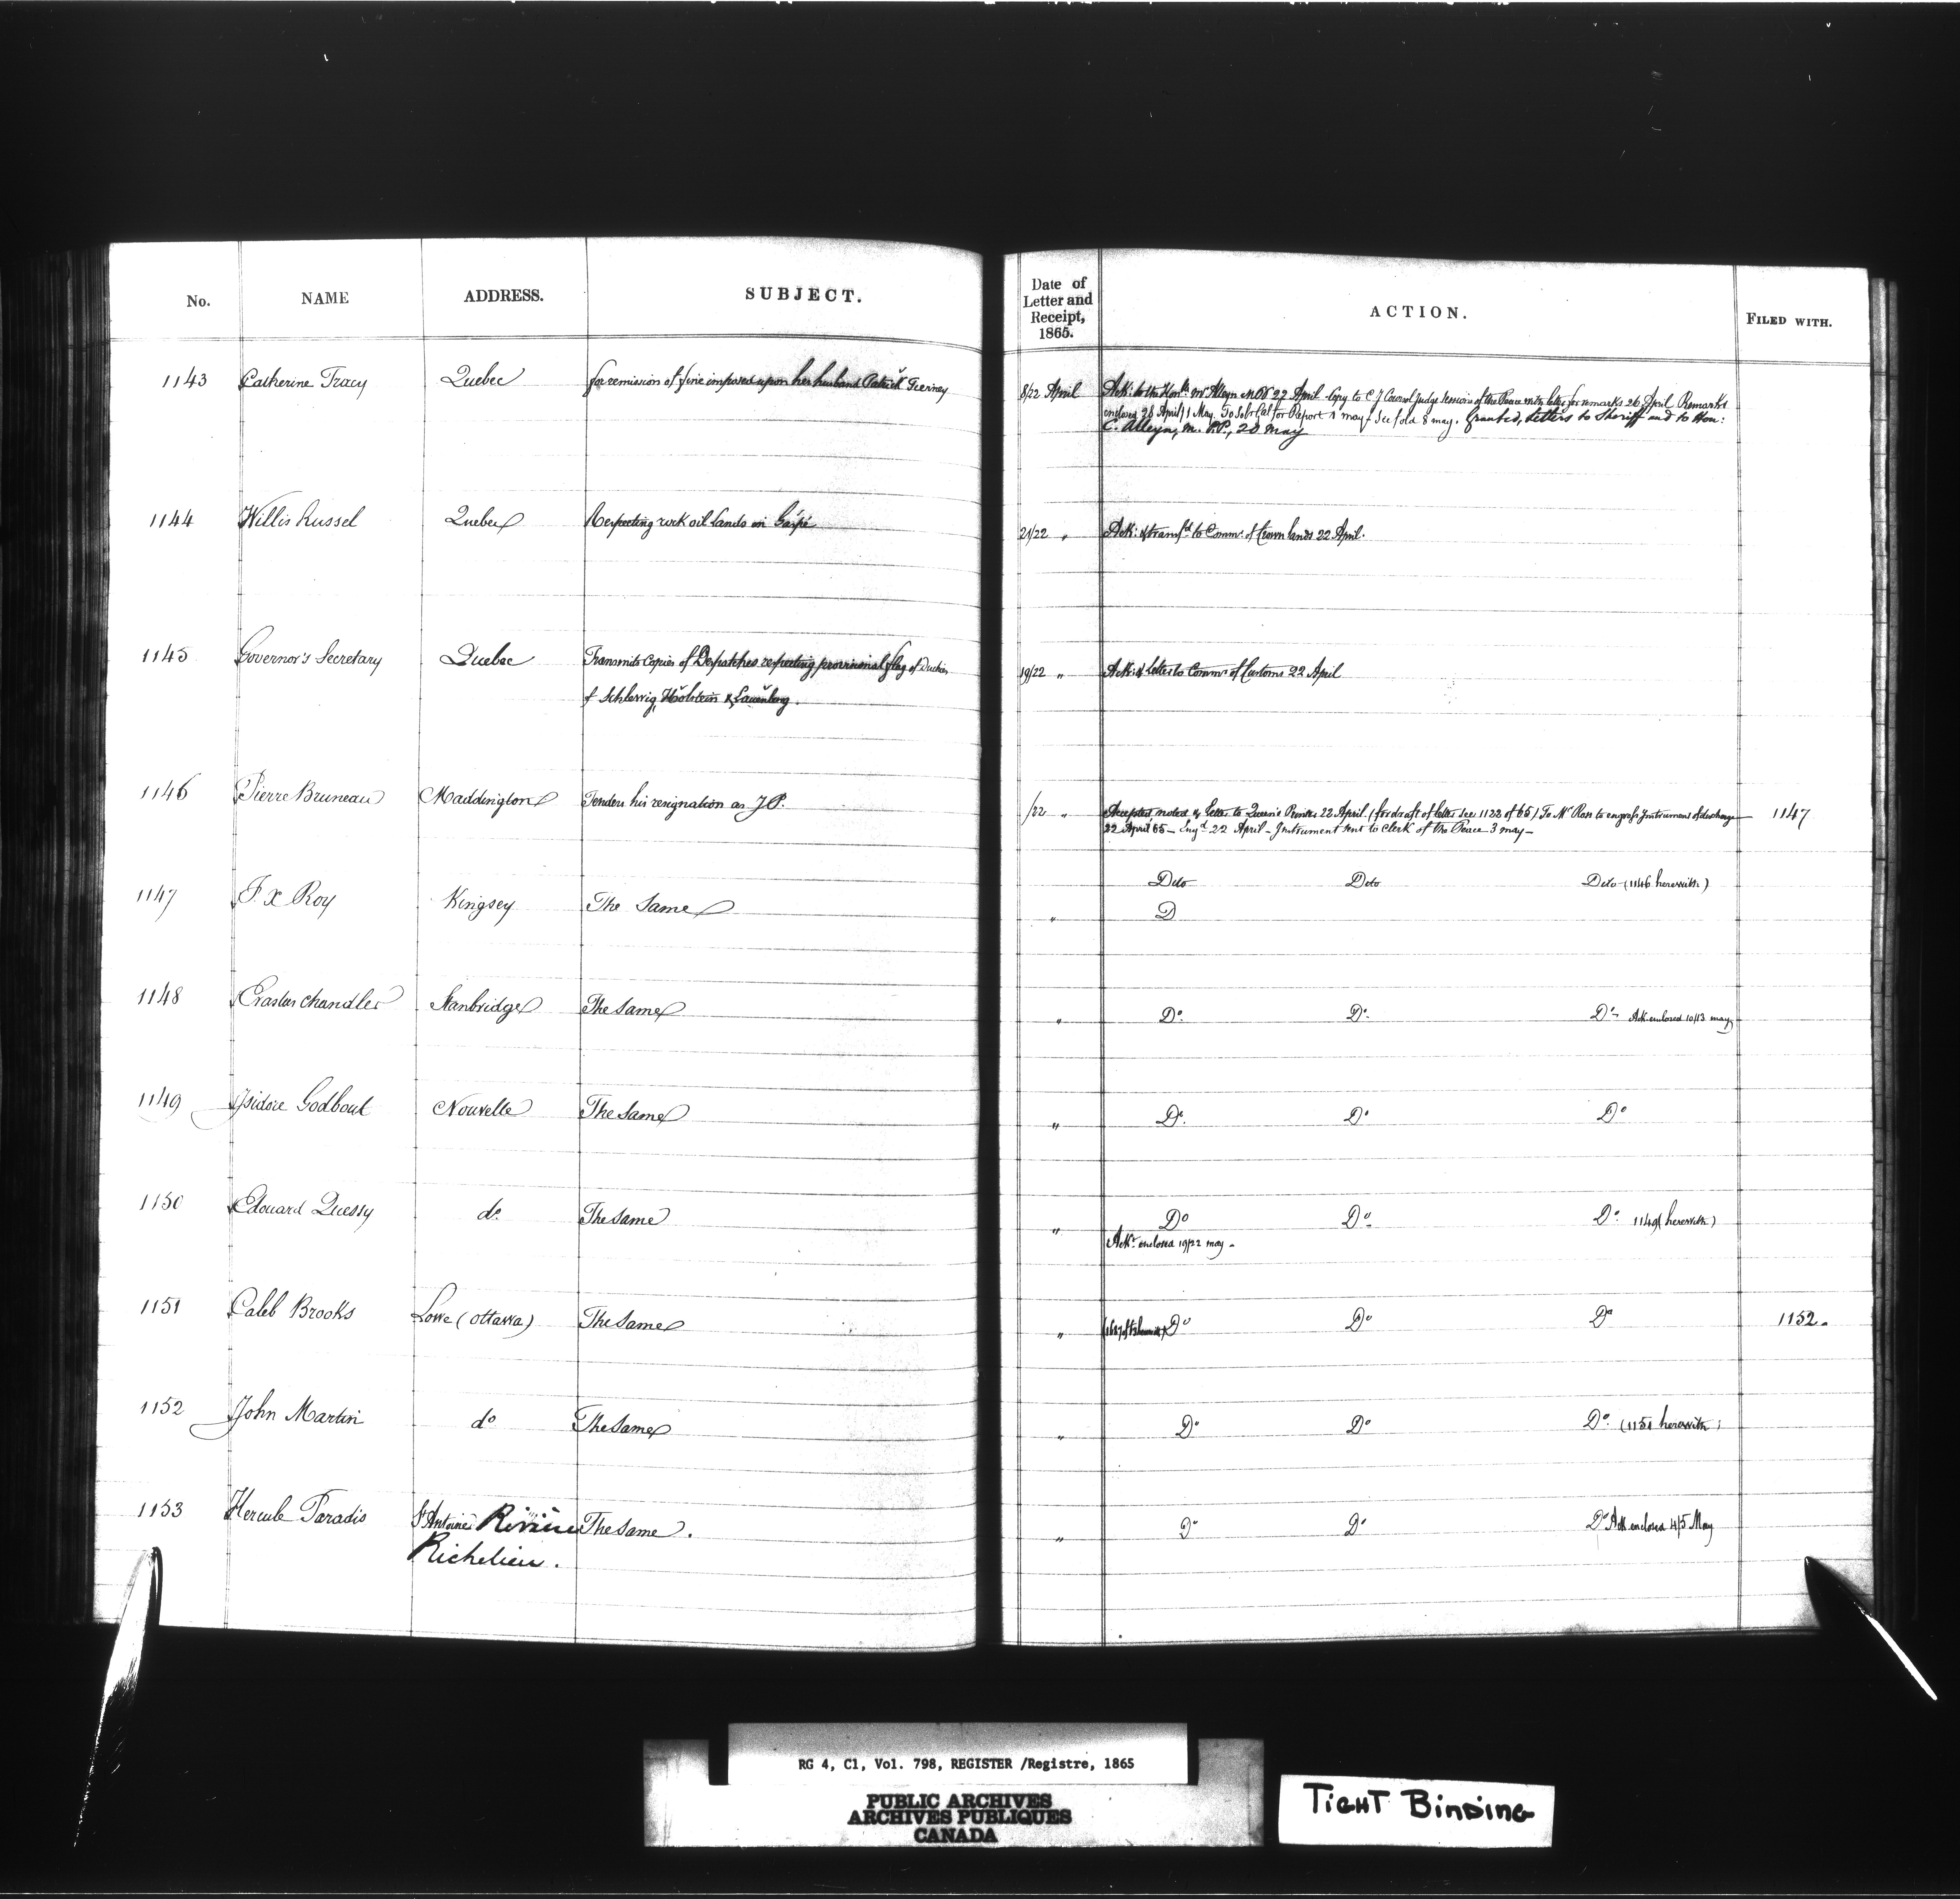 No. NAME ADDRESS. SUBJECT. Date of Letter and Receipt, 1865. ACTION. FILED WITH.
1143 Catherine Tracy Quebec for remission of fine imposed upon her husband Patrick Tierney 8/22 April Ack: to the Hon: Mr Alleyn MPP 22 April Copy to C J Coursol Judge Sessions of the Peace with letter for remarks 26 April Remarks
enclosed 28 April/1 May. To Solr Gal for Report 1 may - See fold 8 may. Granted, Letters to Sheriff and to Hon:
C. Alleyn, M. P.P., 20 May
1144 Willis Russel Quebec Respecting rock oil lands in Gaspé 21/22 " Ack: & transfd to Commr of Crown lands 22 April.
1145 Governor's Secretary Quebec Transmits Copies of Despatches respecting provisional flag of Duchies 19/22 " Ack: & Letter to Commr of Customs 22 April
of Schleswig, Holstein & Lauenberg.
1146 Pierre Bruneau Maddington Tenders his resignation as J.P. /22 " Accepted, noted & Letter to Queen's Printer 22 April. (for draft of letter see 1122 of 65) To Mr Ross to engross Instrument of discharge 1147
22 April 65 - Engd 22 April - Instrument sent to Clerk of the Peace 3 may -
Dito Dito Dito (1146 herewith)
1147 F. X Roy Kingsey The Same " D
1148 Erastus Chandler Stanbridge The Same " Do. Do. Do. Ack enclosed 10/13 may
1149 Isidore Godbout Nouvelle The Same " Do. Do Do
1150 Edouard Quessy do. The Same " Do Do Do. 1149 (herewith)
Ackt enclosed 19/22 may -
1151 Caleb Brooks Lowe (Ottawa) The Same " Do Do Do 1152.
1152 John Martin do The Same " Do Do Do. (1151 herewith)
1153 Hercule Paradis St Antoine Rivière The Same. " Do Do Do Ack enclosed 4/5 May
Richelieu.
RG 4, C1, Vol. 798, REGISTER /Registre, 1865
PUBLIC ARCHIVES
ARCHIVES PUBLIQUES
CANADA
TIGHT BINDING